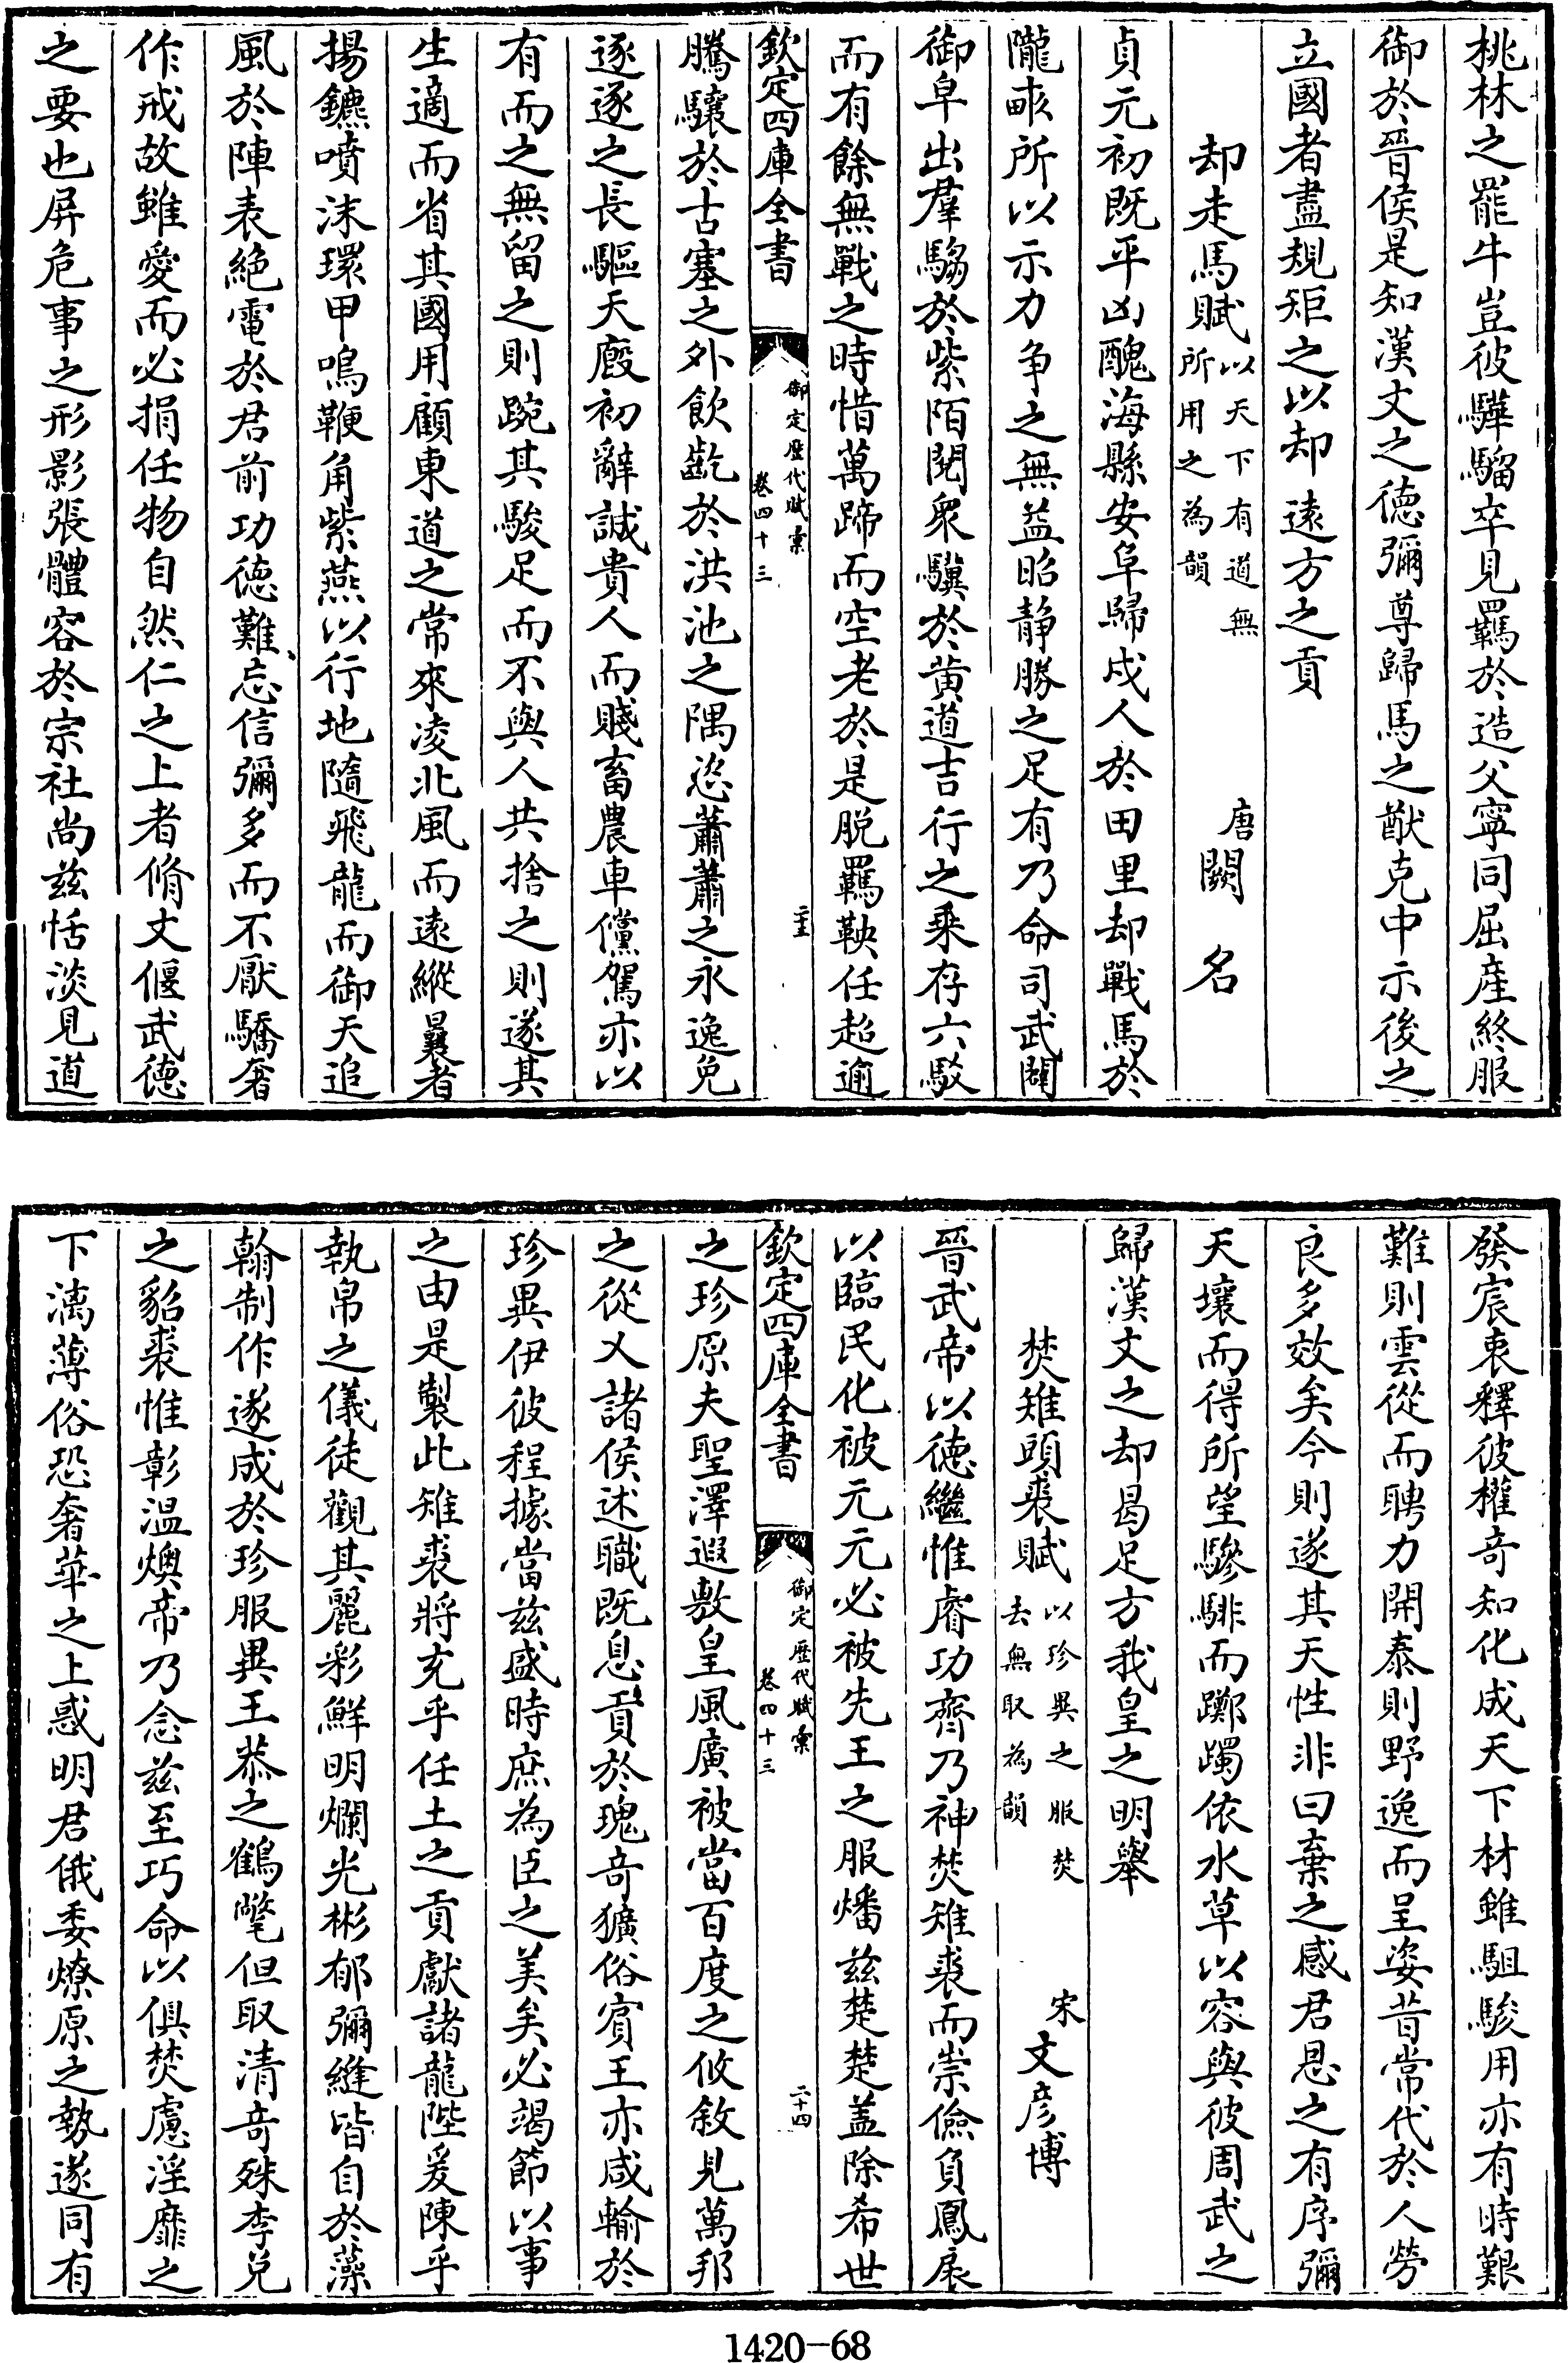 桃林之罷牛豈彼驊騮卒見羈於造父寧同屈產終服
御於晉侯是知漢文之德彌尊歸馬之猷克中示後之
立國者盡規矩之以却遠方之貢
却走馬賦以天下有道無所用之為韻 唐闕名
貞元初既平凶醜海縣安阜歸戍人於田里却戰馬於
隴畝所以示力争之無益昭静勝之足有乃命司武閱
御阜出羣騶於紫陌閱衆驥於黄道吉行之乘存六駁
而有餘無戰之時惜萬蹄而空老於是脱羈鞅任超逾
欽定四庫全書 御定歷代賦彙 卷四十三 二十三
騰驤於古塞之外飲齕於洪池之隅恣蕭蕭之永逸免
逐逐之長驅天廐初辭誠貴人而賤畜農車儻駕亦以
有而之無留之則踠其駿足而不與人共捨之則遂其
生適而省其國用顧東道之常來凌北風而遠縱曩者
揚鑣噴沫環甲鳴鞭角紫燕以行地隨飛龍而御天追
風於陣表絶電於君前功德難忘信彌多而不厭驕奢
作戒故雖愛而必捐任物自然仁之上者脩文偃武德
之要也屏危事之形影張體容於宗社尚兹恬淡見道
發宸衷釋彼權竒知化成天下材雖駔駿用亦有時艱
難則雲從而聘力開泰則野逸而呈姿昔常代於人勞
良多效矣今則遂其天性非曰棄之感君恩之有序彌
天壤而得所望驂騑而躑躅依水草以容與彼周武之
歸漢文之却曷足方我皇之明舉
焚雉頭裘賦以珍異之服焚去無取為韻 宋文彦博
晉武帝以德繼惟睿功齊乃神焚雉裘而崇儉負鳳扆
以臨民化被元元必被先王之服燔兹楚楚盖除希世
欽定四庫全書 御定歷代賦彙 卷四十三 二十四
之珍原夫聖澤遐敷皇風廣被當百度之攸敘見萬邦
之從乂諸侯述職既息貢於瑰竒獷俗賓王亦咸輸於
珍異伊彼程據當兹盛時庶為臣之美矣必竭節以事
之由是製此雉裘將充乎任土之貢獻諸龍陛爰陳乎
執帛之儀徒觀其麗彩鮮明爛光彬郁彌縫皆自於藻
翰制作遂成於珍服異王恭之鶴氅但取清竒殊李兌
之貂裘惟彰温燠帝乃念兹至巧命以俱焚慮淫靡之
下漓薄俗恐奢華之上惑明君俄委燎原之勢遂同有
1420-68